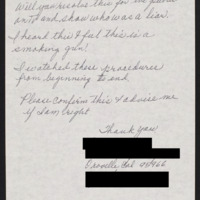 Will you resolve this for its
on TV and show who was a liar.
I heard this & feel this is a
smoking gun!
I watched these procedures
from beginning to end.
Please confirm this & advise me
if I am right
Thank you
Oroville, Cal 95966